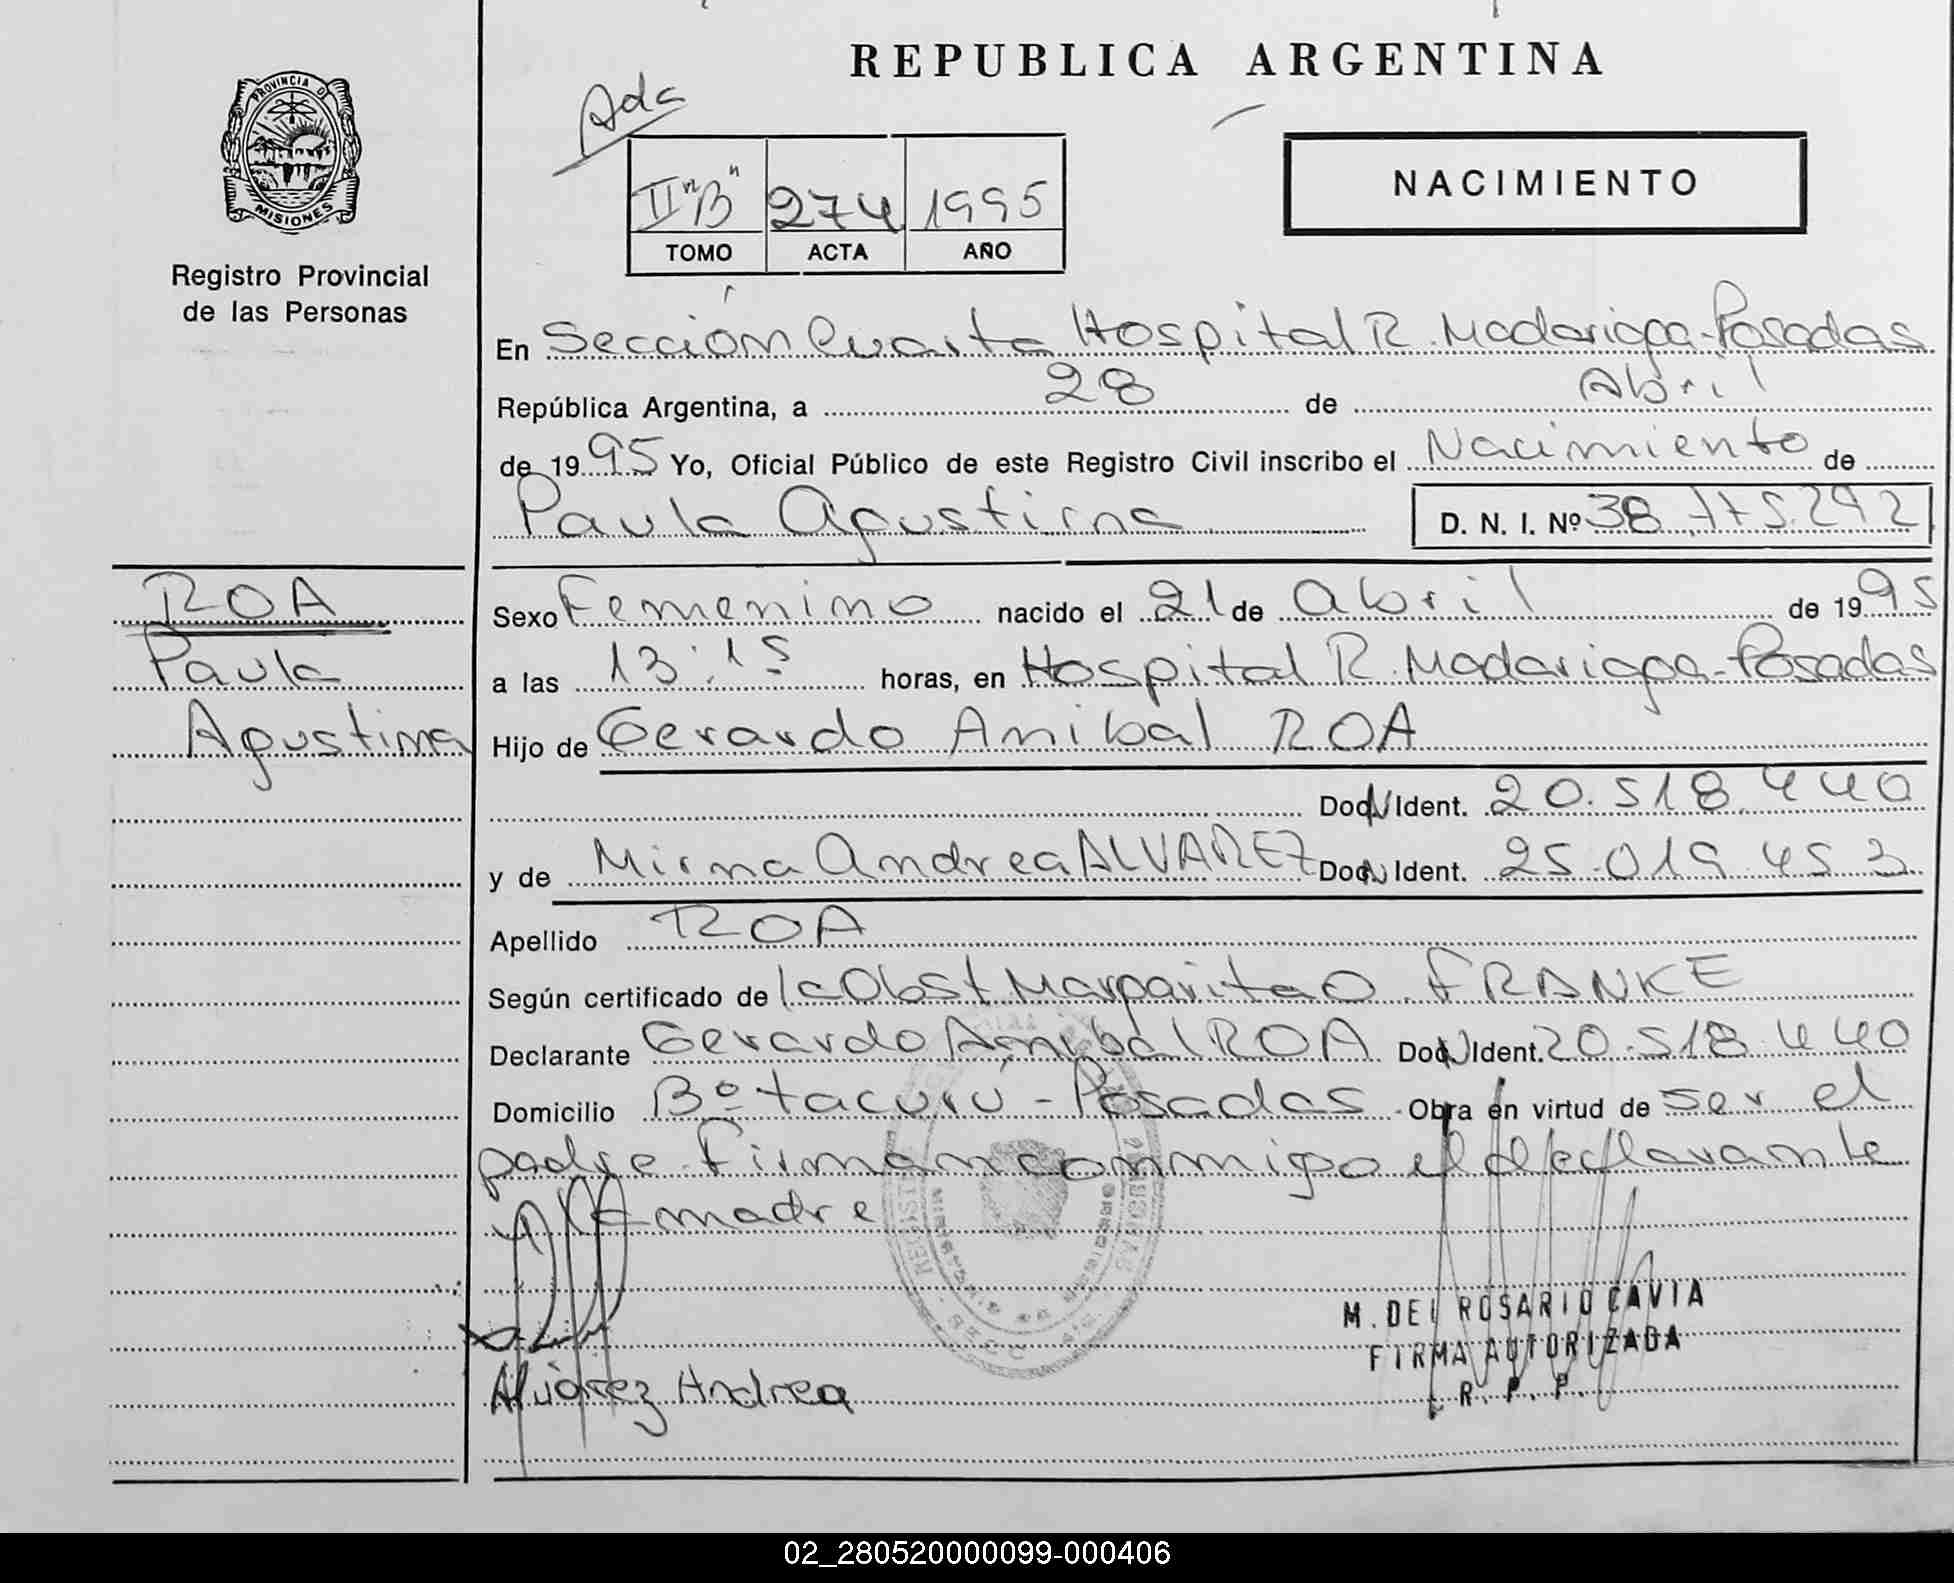 REPUBLICA ARGENTINA
PROVINCIA DE
MISIONES
Registro Provincial
de las Personas
Adc
II "B" 274 1995
TOMO ACTA AÑO
NACIMIENTO
En Sección Cuarta Hospital R. Madariaga-Posadas
República Argentina, a 28 de Abril
de 1995 Yo, Oficial Público de este Registro Civil inscribo el Nacimiento de
Paula Agustina D. N. I. Nº 38.775.292
ROA
Paula
Agustina
Sexo Femenino nacido el 21 de Abril de 1995
a las 13:15 horas, en Hospital R. Madariaga-Posadas
Hijo de Gerardo Anibal ROA
Doc N Ident. 20.518.440
y de Mirna Andrea ALVAREZ Doc N Ident. 25.019.453
Apellido ROA
Según certificado de la Obst Margarita O FRANKE
Declarante Gerardo Anibal ROA Doc N Ident. 20.518.440
Domicilio Bº tacurú - Posadas Obra en virtud de ser el
padre. Firman conmigo el declarante
madre
M. DEL ROSARIO CAVIA
FIRMA AUTORIZADA
R. P. P.
Alvarez Andrea
02_280520000099-000406